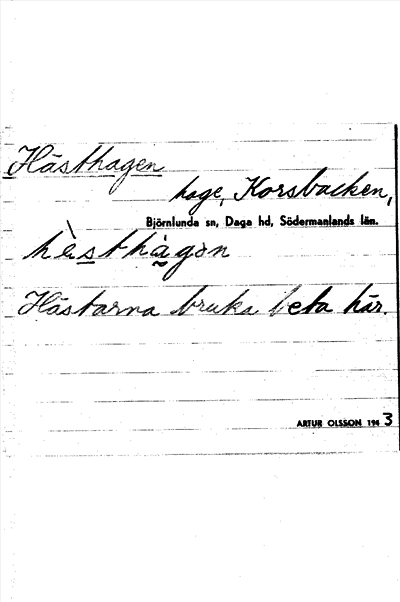 Hästhagen
hage, Korsbacken,
Björnlunda sn, Daga hd, Södermanlands län.
hèsthàgɘn
Hästarna bruka beta här.
ARTUR OLSSON 1943